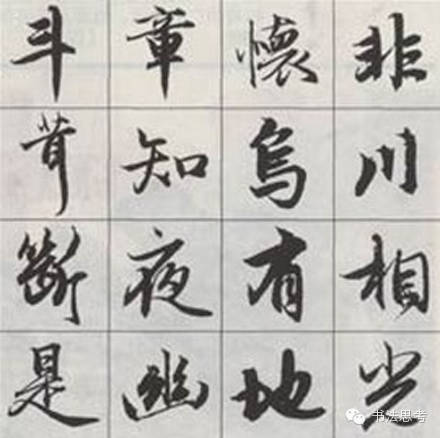 斗 章 懷 非
茸 知 烏 川
斷 夜 有 相
是 幽 地
书法思考